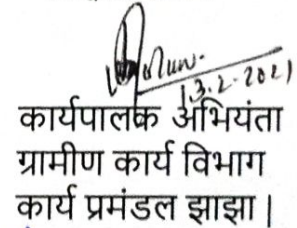 13.2.2021
कार्यपालक अभियंता
ग्रामीण कार्य विभाग
कार्य प्रमंडल झाझा |